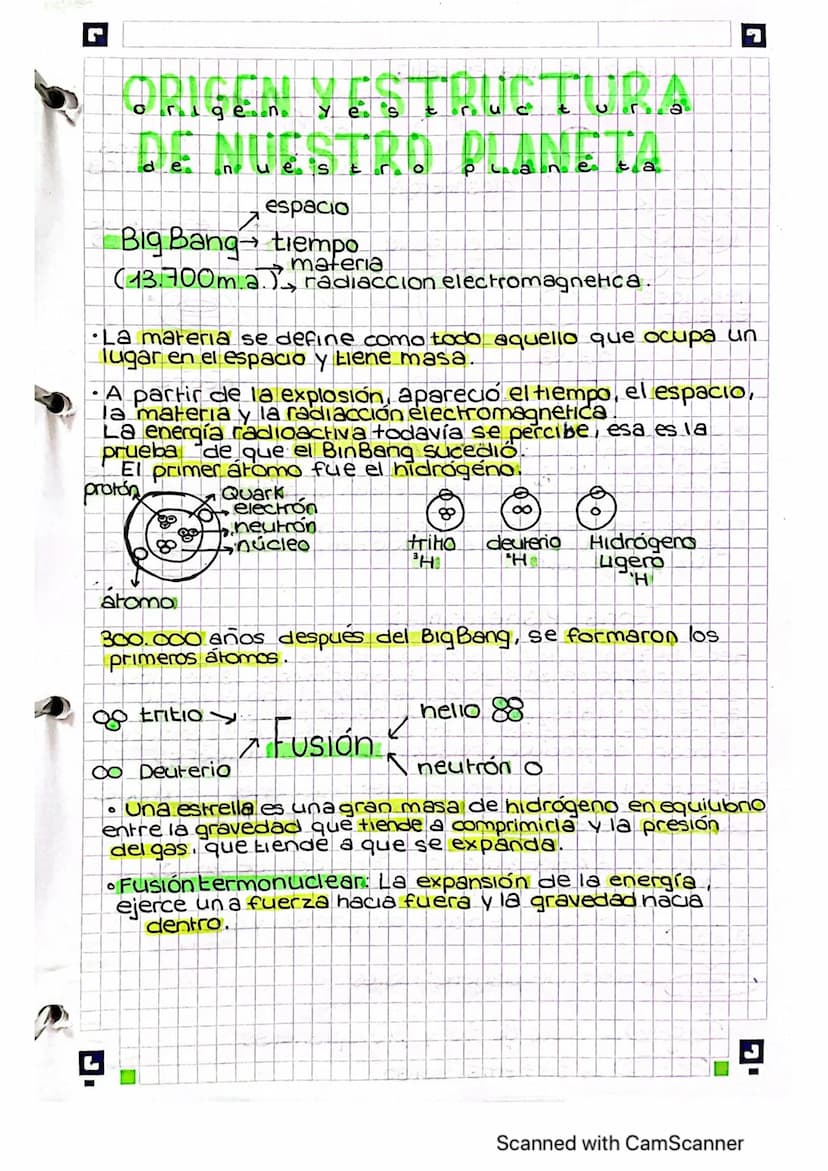 ORIGEN Y ESTRUCTURA
origen y estructura
DE NUESTRO PLANETA
de nuestro planeta
espacio
Big Bang → tiempo
materia
(13.700m.a.) → radiaccion electromagnetica.
· La materia se define como todo aquello que ocupa un
lugar en el espacio y tiene masa.
· A partir de la explosión, apareció el tiempo, el espacio,
la materia y la radiacción electromagnetica.
La energía radioactiva todavía se percibe, esa es la
prueba "de que el BinBang sucedió.
El primer átomo fue el hidrógeno.
protón
Quark
electrón
neutrón
núcleo
átomo
tritio deuterio Hidrógeno
ligero
³H ²H ¹H
300.000 años después del Big Bang, se formaron los
primeros átomos.
tritio
Deuterio
Fusión
helio
neutrón
· Una estrella es una gran masa de hidrógeno en equilibrio
entre la gravedad que tiende a comprimirla y la presión
del gas, que tiende a que se expanda.
· Fusión termonuclear: La expansión de la energía,
ejerce una fuerza hacia fuera y la gravedad hacia
dentro.
Scanned with CamScanner